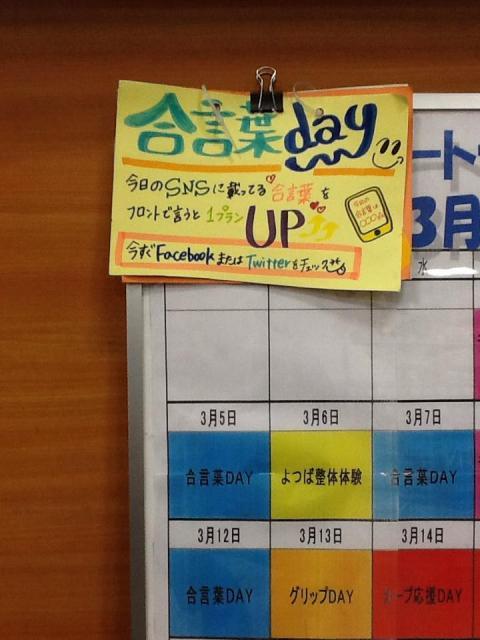 合言葉day
今日のSNSに載ってる合言葉を
フロントで言うと1プランUP
今すぐFacebookまたはTwitterをチェック
ート
3月
水
3月5日 3月6日 3月7日
合言葉DAY よつば整体体験 合言葉DAY
3月12日 3月13日 3月14日
合言葉DAY グリップDAY ープ応援DAY